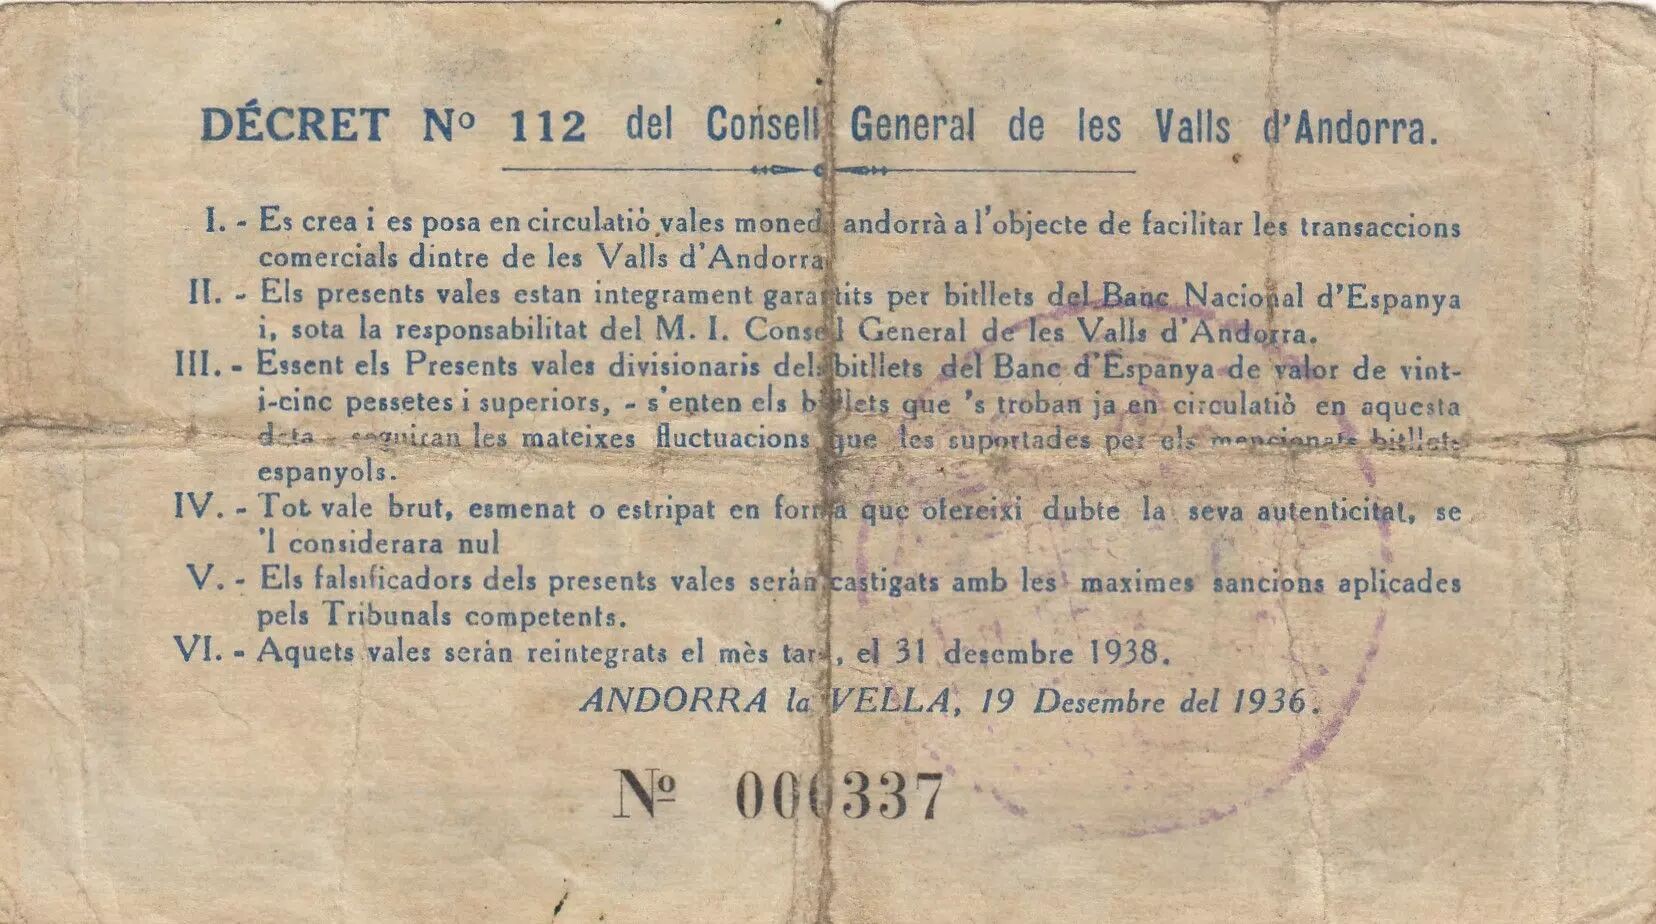 DÉCRET Nº 112 del Consell General de les Valls d'Andorra.
I. - Es crea i es posa en circulatiò vales moneda andorrà a l'objecte de facilitar les transaccions
comercials dintre de les Valls d'Andorra
II. - Els presents vales estan integrament garantits per bitllets del Banc Nacional d'Espanya
i, sota la responsabilitat del M. I. Consell General de les Valls d'Andorra.
III. - Essent els Presents vales divisionaris dels bitllets del Banc d'Espanya de valor de vint-
i-cinc pessetes i superiors, - s'enten els bitllets que 's troban ja en circulatiò en aquesta
data - seguiran les mateixes fluctuacions que les suportades per els mencionats bitllets
espanyols.
IV. - Tot vale brut, esmenat o estripat en forma que ofereixi dubte la seva autenticitat, se
'l considerara nul
V. - Els falsificadors dels presents vales seràn castigats amb les maximes sancions aplicades
pels Tribunals competents.
VI. - Aquets vales seràn reintegrats el mès tard, el 31 desembre 1938.
ANDORRA la VELLA, 19 Desembre del 1936.
Nº 000337